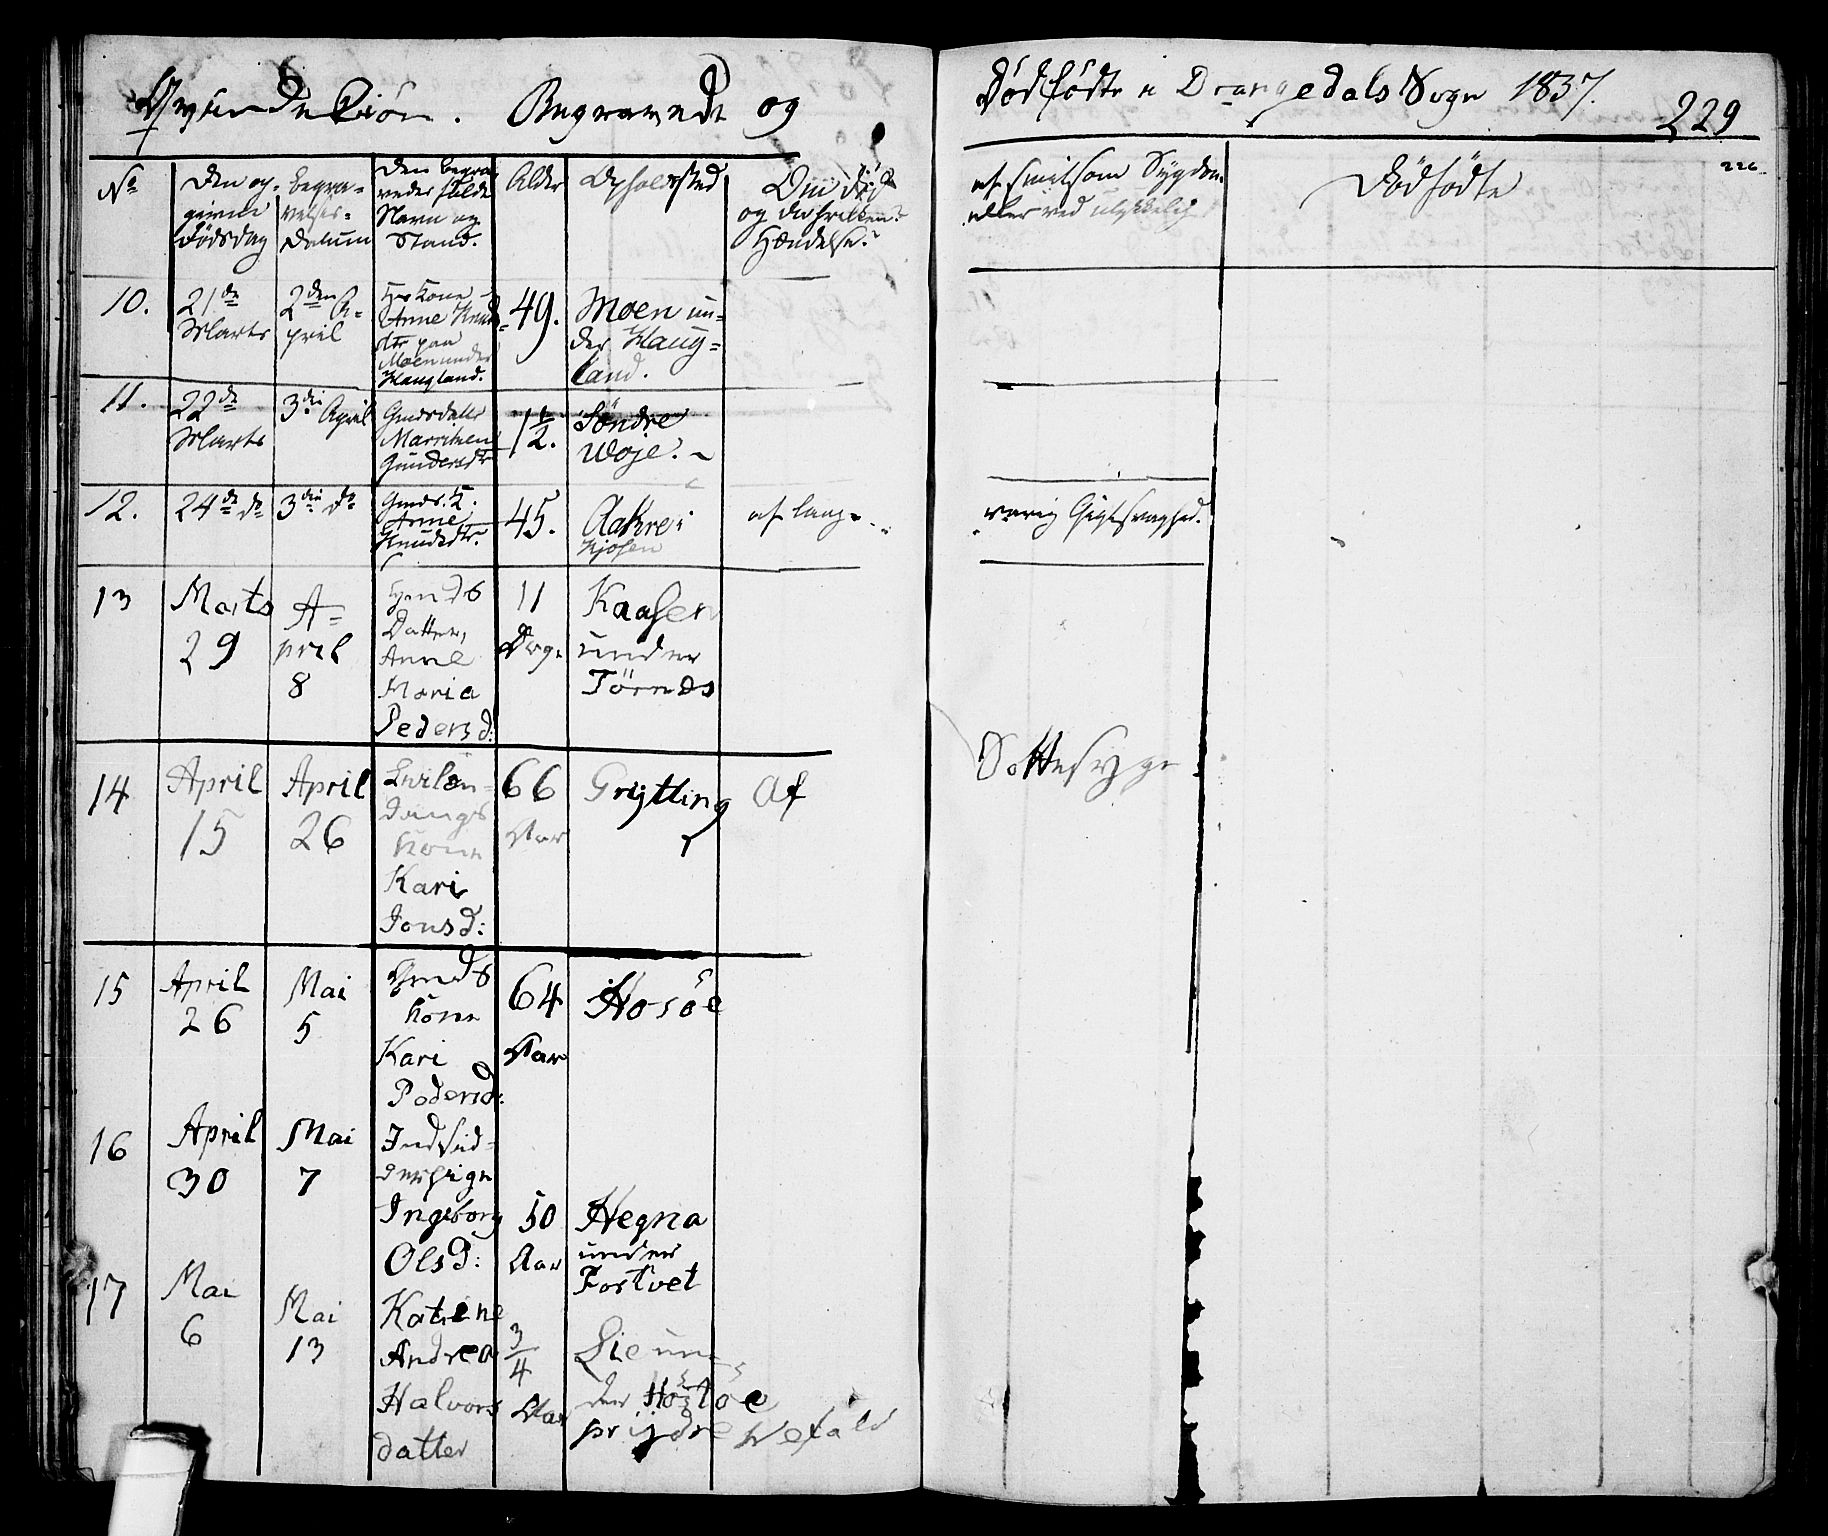 Qvindekiön. Begravede og
Dødfödte i Drangedals Sogn 1837.
229
226
No
Den op-
givne
Dödsdag
Begra-
velses-
Datum
Den begra-
vedes fulde
Navn og
Stand.
Alder
Opholdssted
Om död
og
Hændelse.
af smitsom Sygdom
eller ved ulykkelig
Dödfödte
10.
21de
Marts
2den A-
pril
Anne Knuds-
dtr paa
Moen under
Haugland.
49.
Moen un-
der Haug-
land.
11.
22de
Marts
3die April
Gmdsdatter
Gundersdtr
1 1/2.
Söndre
Woje.
12.
24de do
3die do
Gmds. K.
Anne
Knudsdtr.
45.
Aakre i
Kjosen
af lang-
varig Gigtsvaghed.
13
Marts
29
A-
pril
8
Hmds
Datter,
Anne
Maria
Pedersd:
11
Dage
Kaasen
under
Törnes
14
April
15
April
26
Kone
Kari
Jonsd:
66
Aar
Grijtting
Af
Sottesyge
15
April
26
Mai
5
Gmds
Kone
Kari
Pedersd:
64
Aar
Hosöe
16
April
30
Mai
7
Indsid-
derpige
Ingeborg
Olsd:
50
Aar
Hegna
under
Tortvet
17
Mai
6
Mai
13
Katrine
Andrea
Halvors
datter
3/4
Aar
Lie un-
der Hostöe
prijdre Wefald